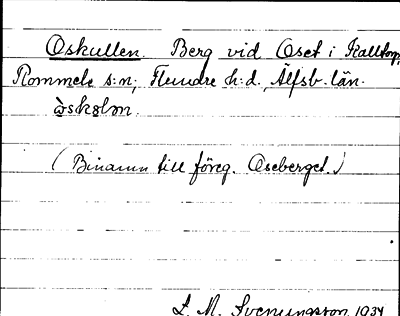 Oskullen. Berg vid Oset i Kalltorp,
Rommele s:n, Flundre h:d. Älfsb. län.
òskɵlən.
(Binamn till föreg. Oseberget.)
S. M. Svenungsson 1934